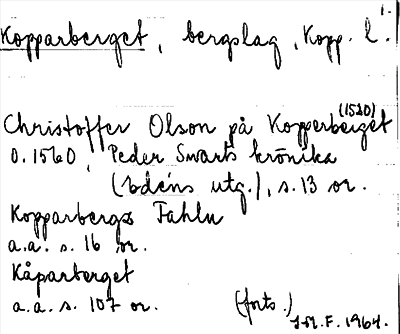 1.
Kopparberget, bergslag, Kopp. l.
(1520)
Christoffer Olson på Kopperberget
o. 1560, Peder Swarts krönika
(Edéns utg.), s. 13 or.
Kopparbergz Fahlu
a.a. s. 16 or.
Kåparberget
a.a. s. 107 or. (forts.)
J.M.F. 1964.